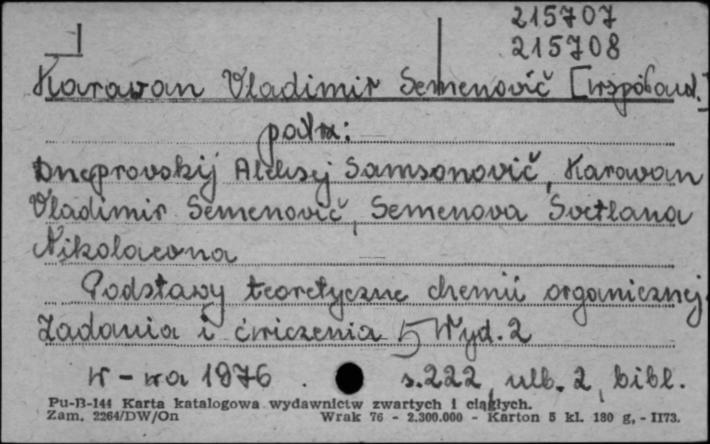 215707
215708
Karavan Vladimir Semenovič [współaut.]
patrz:
Dneprovskij Aleksej Samsonovič, Karavan
Vladimir Semenovič, Semenova Svetlana
Nikolaevna
Podstawy teoretyczne chemii organicznej.
Zadania i ćwiczenia Wyd. 2
W-wa 1976 . s. 222, nlb. 2, bibl.
Pu-B-144 Karta katalogowa wydawnictw zwartych i ciągłych.
Zam. 2264/DW/On Wrak 76 - 2.300.000 - Karton 5 kl. 180 g, - II73.